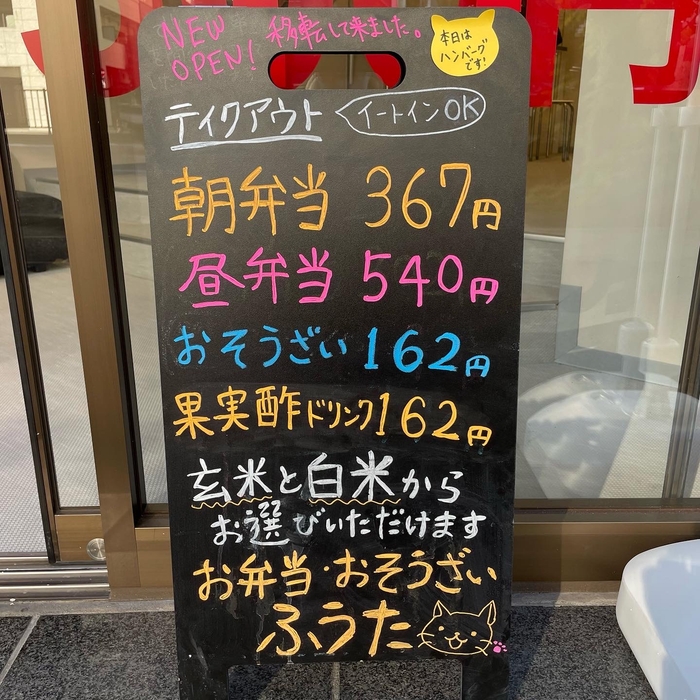 NEW
OPEN! 移転して来ました。
本日は
ハンバーグ
です!
テイクアウト イートインOK
朝弁当 367円
昼弁当 540円
おそうざい 162円
果実酢ドリンク162円
玄米と白米から
お選びいただけます
お弁当・おそうざい
ふうた